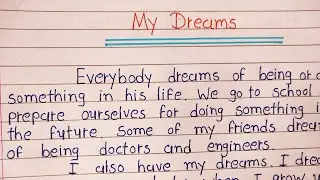 My Dreams
Everybody dreams of being or
something in his life. We go to school
prepare ourselves for doing something
the future. Some of my friends
of being doctors and engineers.
I also have my dreams. I